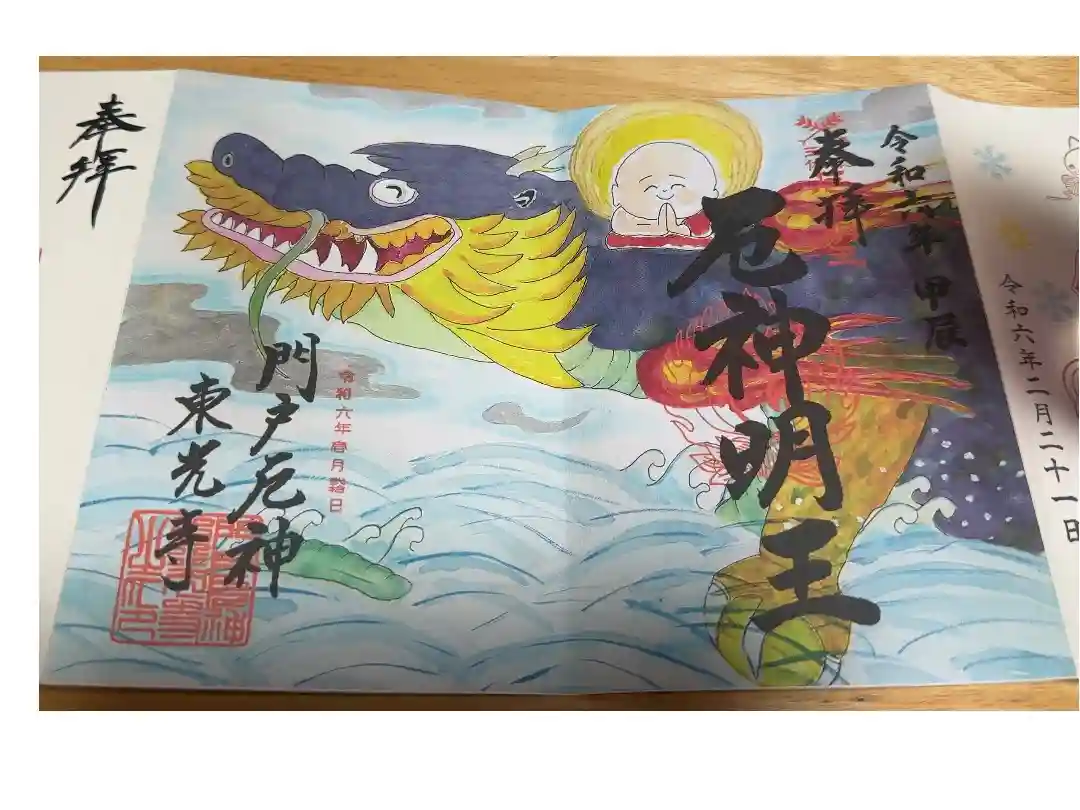 令和六年二月二十一日
令和六年 甲辰
奉拝
厄神明王
令和六年 春月 踏日
門戸厄神
東光寺
奉拝